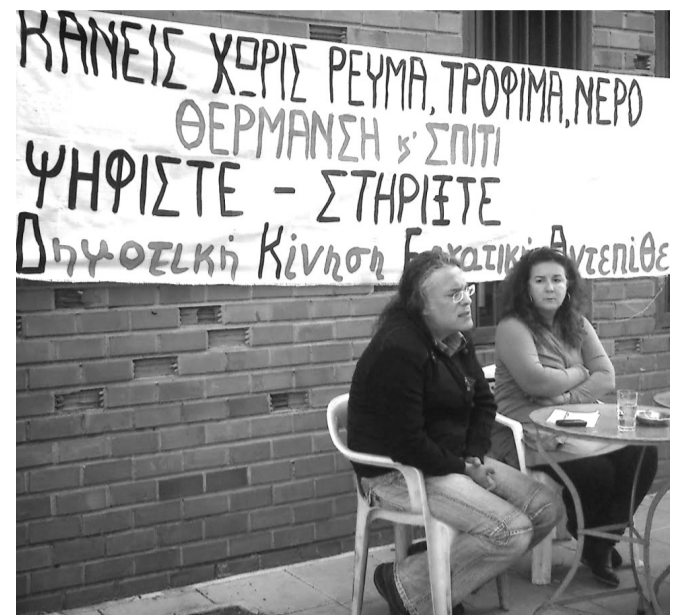 ΚΑΝΕΙΣ ΧΩΡΙΣ ΡΕΥΜΑ, ΤΡΟΦΙΜΑ, ΝΕΡΟ
ΘΕΡΜΑΝΣΗ κ' ΣΠΙΤΙ
ΨΗΦΙΣΤΕ - ΣΤΗΡΙΞΤΕ
Δημοτική Κίνηση Εργατική Αντεπίθε